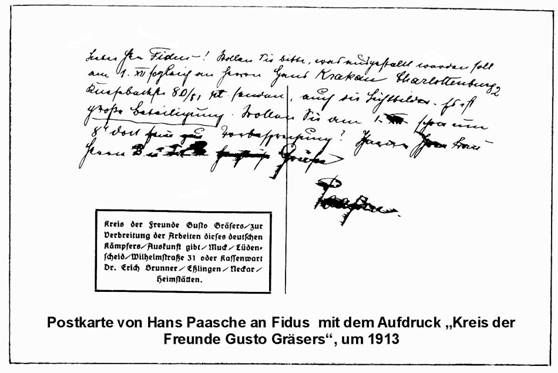 Lieber Herr Fidus! Wollen Sie bitte, was ausgestellt werden soll
am 1. XII sogleich an Herrn Hans Krakau Charlottenburg 2
Knesebeckstr 80/81 senden, auch die Lichtbilder. Es ist
große Beteiligung. Wollen Sie am 1. schon um
8h dort sein Vorbesprechung? Frau
Herrn Grüße
Kreis der Freunde Gusto Gräsers/zur
Verbreitung der Arbeiten dieses deutschen
Kämpfers/Auskunft gibt/Muck/Lüden-
scheid/Wilhelmstraße 31 oder Kassenwart
Dr. Erich Brunner/Eßlingen/Neckar/
Heimstätten.
Postkarte von Hans Paasche an Fidus mit dem Aufdruck „Kreis der
Freunde Gusto Gräsers“, um 1913